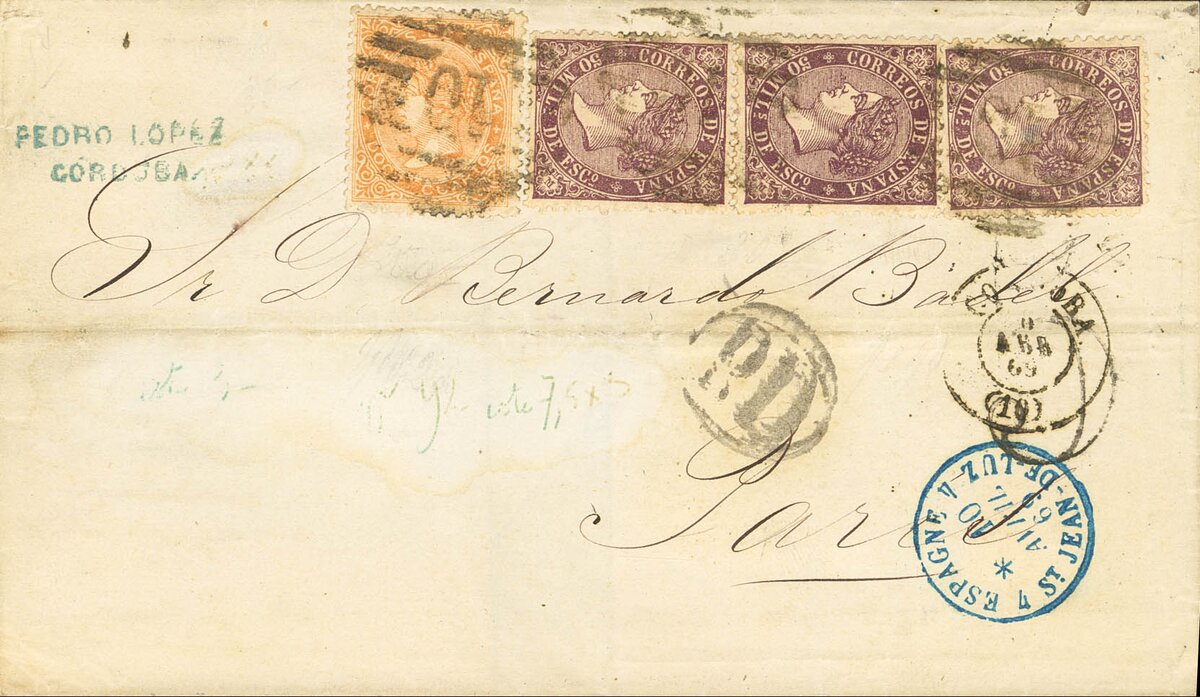 PEDRO LOPEZ
CÓRDOBA
CORREOS DE ESPAÑA
50 MIL S DE ESCO
CORREOS DE ESPAÑA
50 MIL S DE ESCO
CORREOS DE ESPAÑA
50 MIL S DE ESCO
Sr D Bernardo
P.D.
ABR
69
(10)
Paris
4 ESPAGNE 4
ST JEAN-DE-LUZ
10
AVRIL
69